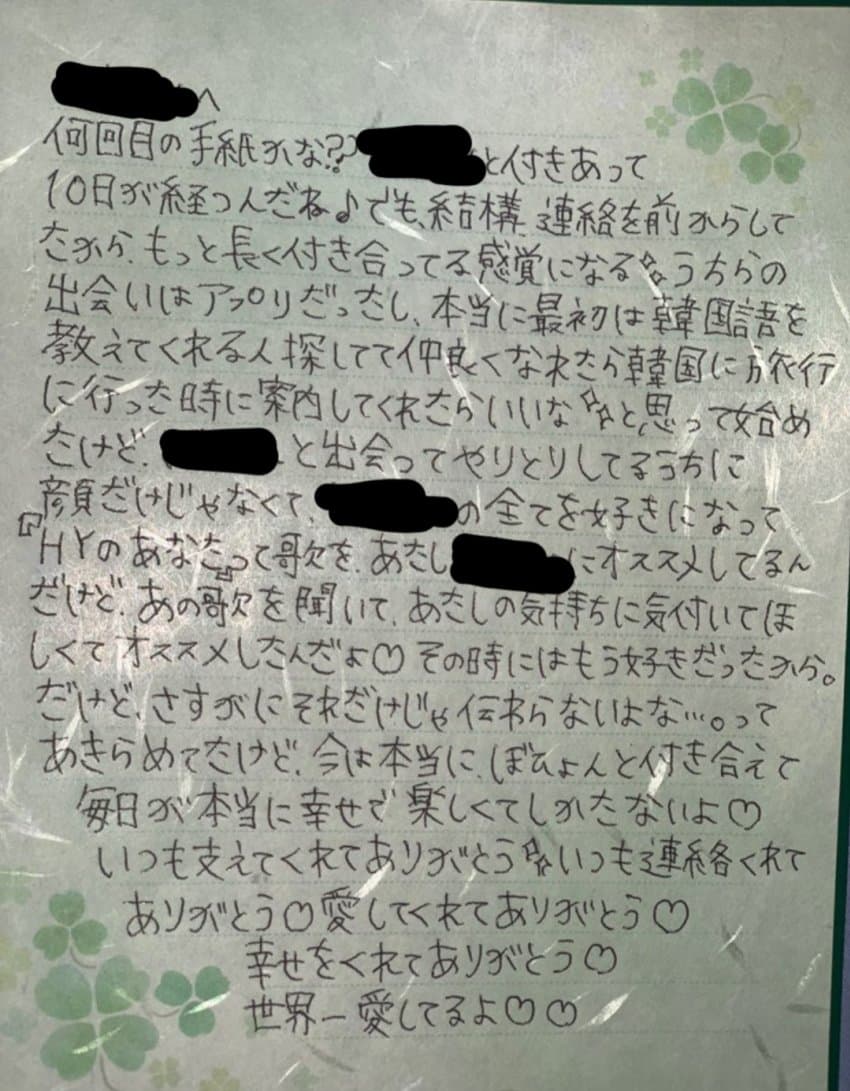 へ
何回目の手紙かな??と付きあって
10日が経つんだね♪でも、結構連絡を前からして
たから、もっと長く付き合ってる感覚になる✨うちらの
出会いはアプリだったし、本当に最初は韓国語を
教えてくれる人探してて仲良くなれたら韓国に旅行
に行った時に案内してくれたらいいな✨と思って始め
たけど、と出会ってやりとりしてるうちに
顔だけじゃなくて、の全てを好きになって
『HYのあなた』って歌を、あたしにオススメしてるん
だけど、あの歌を聞いて、あたしの気持ちに気付いてほ
しくてオススメしたんだよ♡その時にはもう好きだったから。
だけど、さすがにそれだけじゃ伝わらないよな…。って
あきらめてたけど、今は本当に、ぼひょんと付き合えて
毎日が本当に幸せで楽しくてしかたないよ♡
いつも支えてくれてありがとう✨いつも連絡くれて
ありがとう♡愛してくれてありがとう♡
幸せをくれてありがとう♡
世界一愛してるよ♡♡